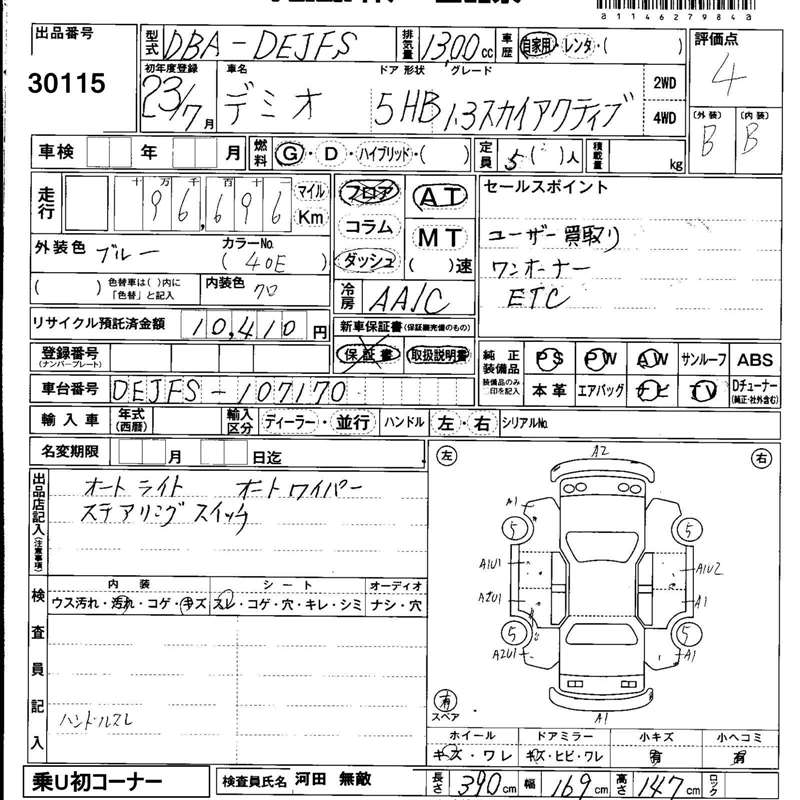 a114627984a
出品番号
30115
型式 DBA-DEJFS 排気量 1300cc 車歴 自家用・レンタ・( )
評価点
4
初年度登録 車名 ドア 形状 グレード
23/7月 デミオ 5HB 1.3スカイアクティブ
2WD
4WD
(外装) (内装)
B B
車検 年 月 燃料 G・D・ハイブリッド・( ) 定員 5( )人 積載量 kg
走行 十 万 千 百 十 一
96,696 マイル Km
フロア
コラム
ダッシュ
AT
MT
( )速
セールスポイント
ユーザー買取り
ワンオーナー
ETC
外装色 ブルー カラーNo. (40E)
( ) 色替車は( )内に「色替」と記入 内装色 クロ
冷房 AA/C
リサイクル預託済金額 10,410円
新車保証書(保証継承完備のもの)
保証書 取扱説明書
登録番号
(ナンバープレート)
車台番号 DEJFS-107170
純正装備品 PS PW AW サンルーフ ABS
装備品のみ印を記入 本革 エアバッグ ナビ TV Dチューナー
(純正・社外含む)
輸入車 年式(西暦) 輸入区分 ディーラー・並行 ハンドル 左・右 シリアルNo.
名変期限 月 日迄
出品店記入(注意事項)
オートライト オートワイパー
ステアリングスイッチ
左 右
A2
A1
5 5
A1U1 A1U2
A2U1 A1
5 5
A2U1 A1
有
スペア
A1
検査員記入
内装 シート オーディオ
ウス汚れ・汚れ・コゲ・キズ スレ・コゲ・穴・キレ・シミ ナシ・穴
ハンドルスレ
ホイール ドアミラー 小キズ 小ヘコミ
キズ・ワレ キズ・ヒビ・ワレ 有 有
乗U初コーナー
検査員氏名 河田 無敵
長さ 390cm 幅 169cm 高さ 147cm ロック